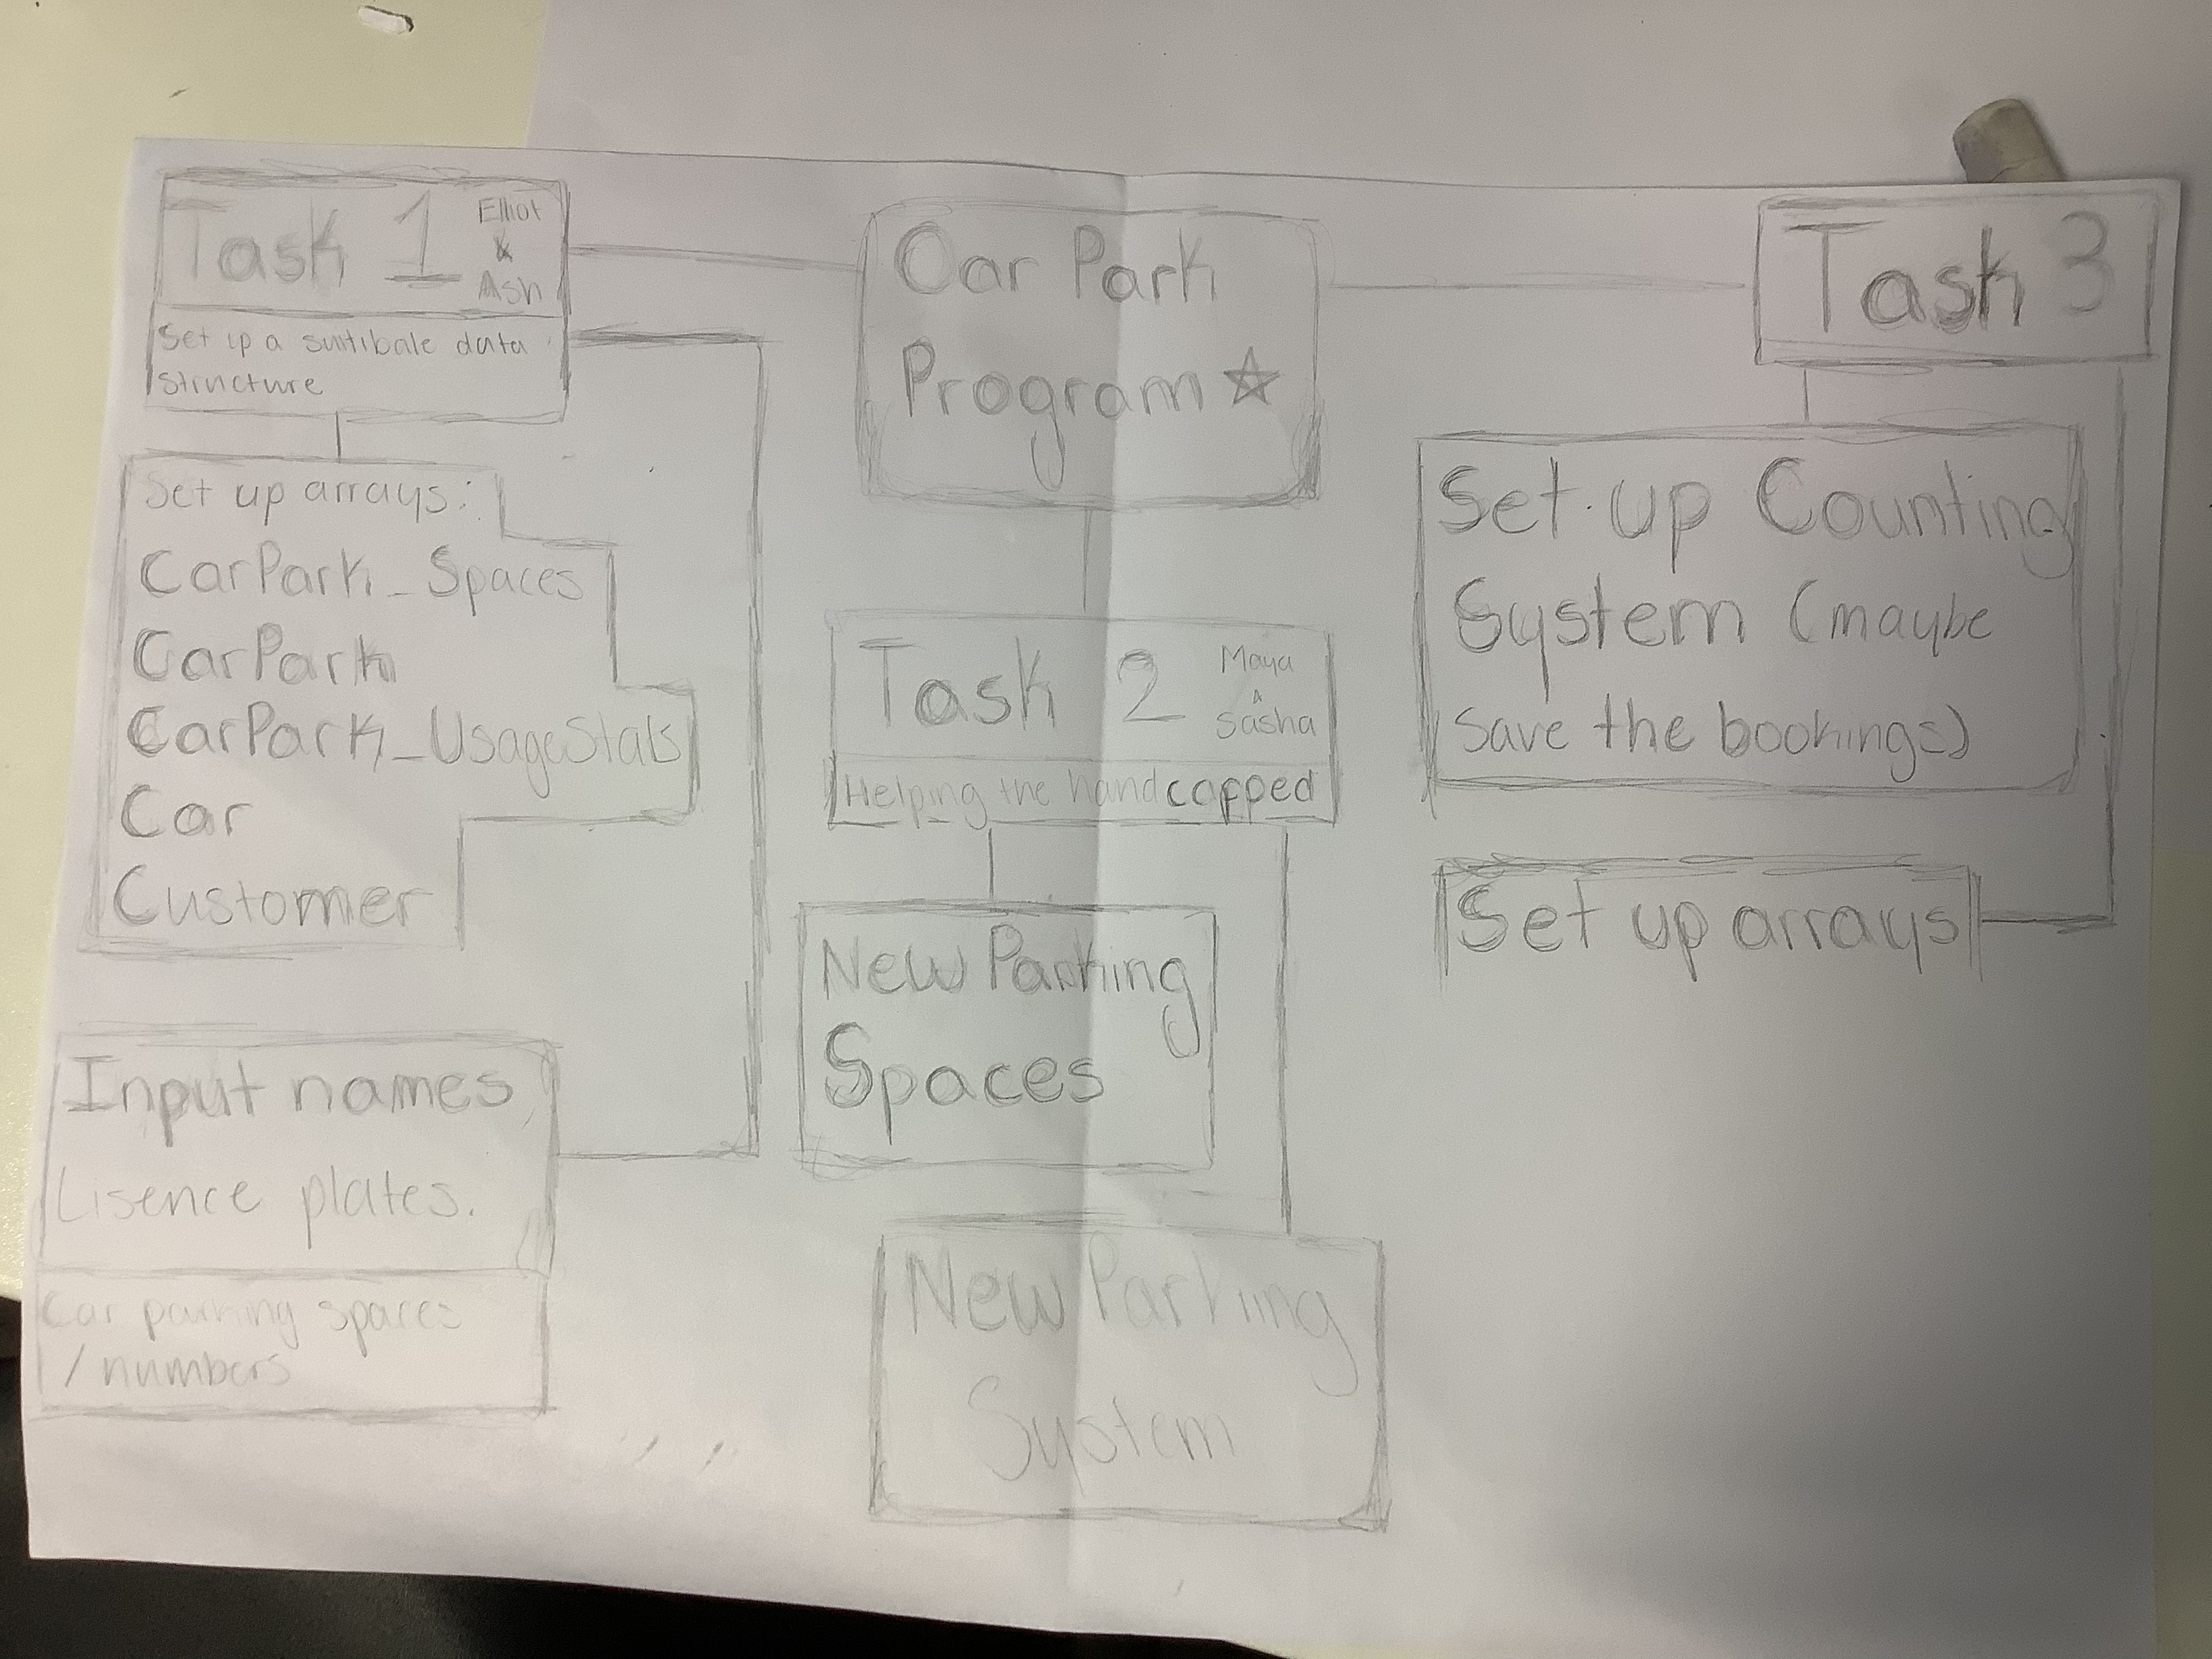 Task 1
Elliot
&
Ash
Set up a suitibale data
structure
Set up arrays:
CarPark_Spaces
CarPark
CarPark_UsageStats
Car
Customer
Input names,
Lisence plates.
Car parking spaces
/numbers
Car Park
Program ☆
Task 2
Maya
&
Sasha
Helping the handcapped
New Parking
Spaces
New Parking
System
Task 3
Set up Counting
System (maybe
save the bookings)
Set up arrays